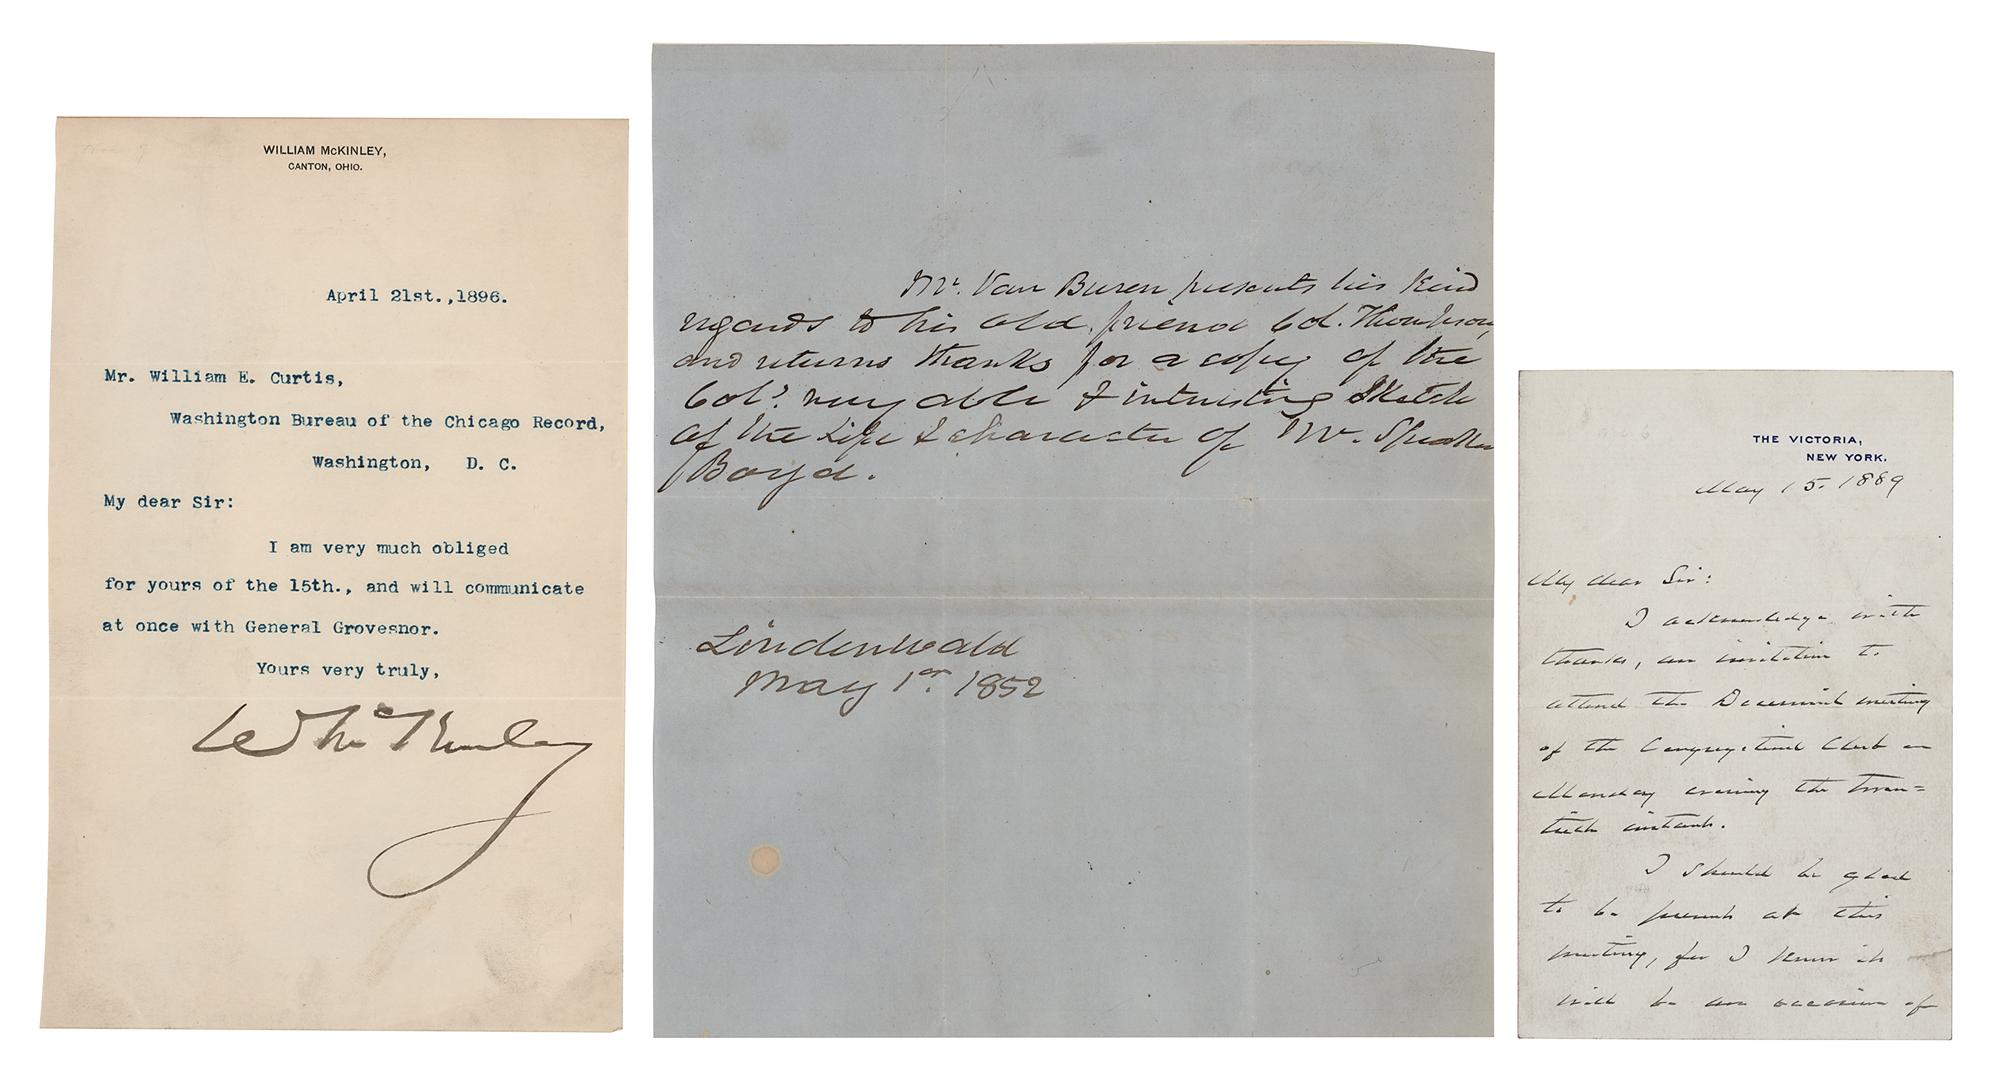 WILLIAM McKINLEY,
CANTON, OHIO.
April 21st.,1896.
Mr. William E. Curtis,
Washington Bureau of the Chicago Record,
Washington, D. C.
My dear Sir:
I am very much obliged
for yours of the 15th., and will communicate
at once with General Grovesnor.
Yours very truly,
Wm McKinley
Mr. Van Buren presents his kind
regards to his old friend Col. Thompson,
and returns thanks for a copy of the
Col's. very able & interesting Sketch
of the Life & character of Mr. Speaker
Boyd.
Lindenwald
May 1st. 1852
THE VICTORIA,
NEW YORK.
May 15. 1889
My dear Sir:
I acknowledge with
thanks, an invitation to
attend the meeting
of the Congregational Club on
Monday evening the twen=
tieth instant.
I should be glad
to be present at this
meeting, for I know it
will be an occasion of